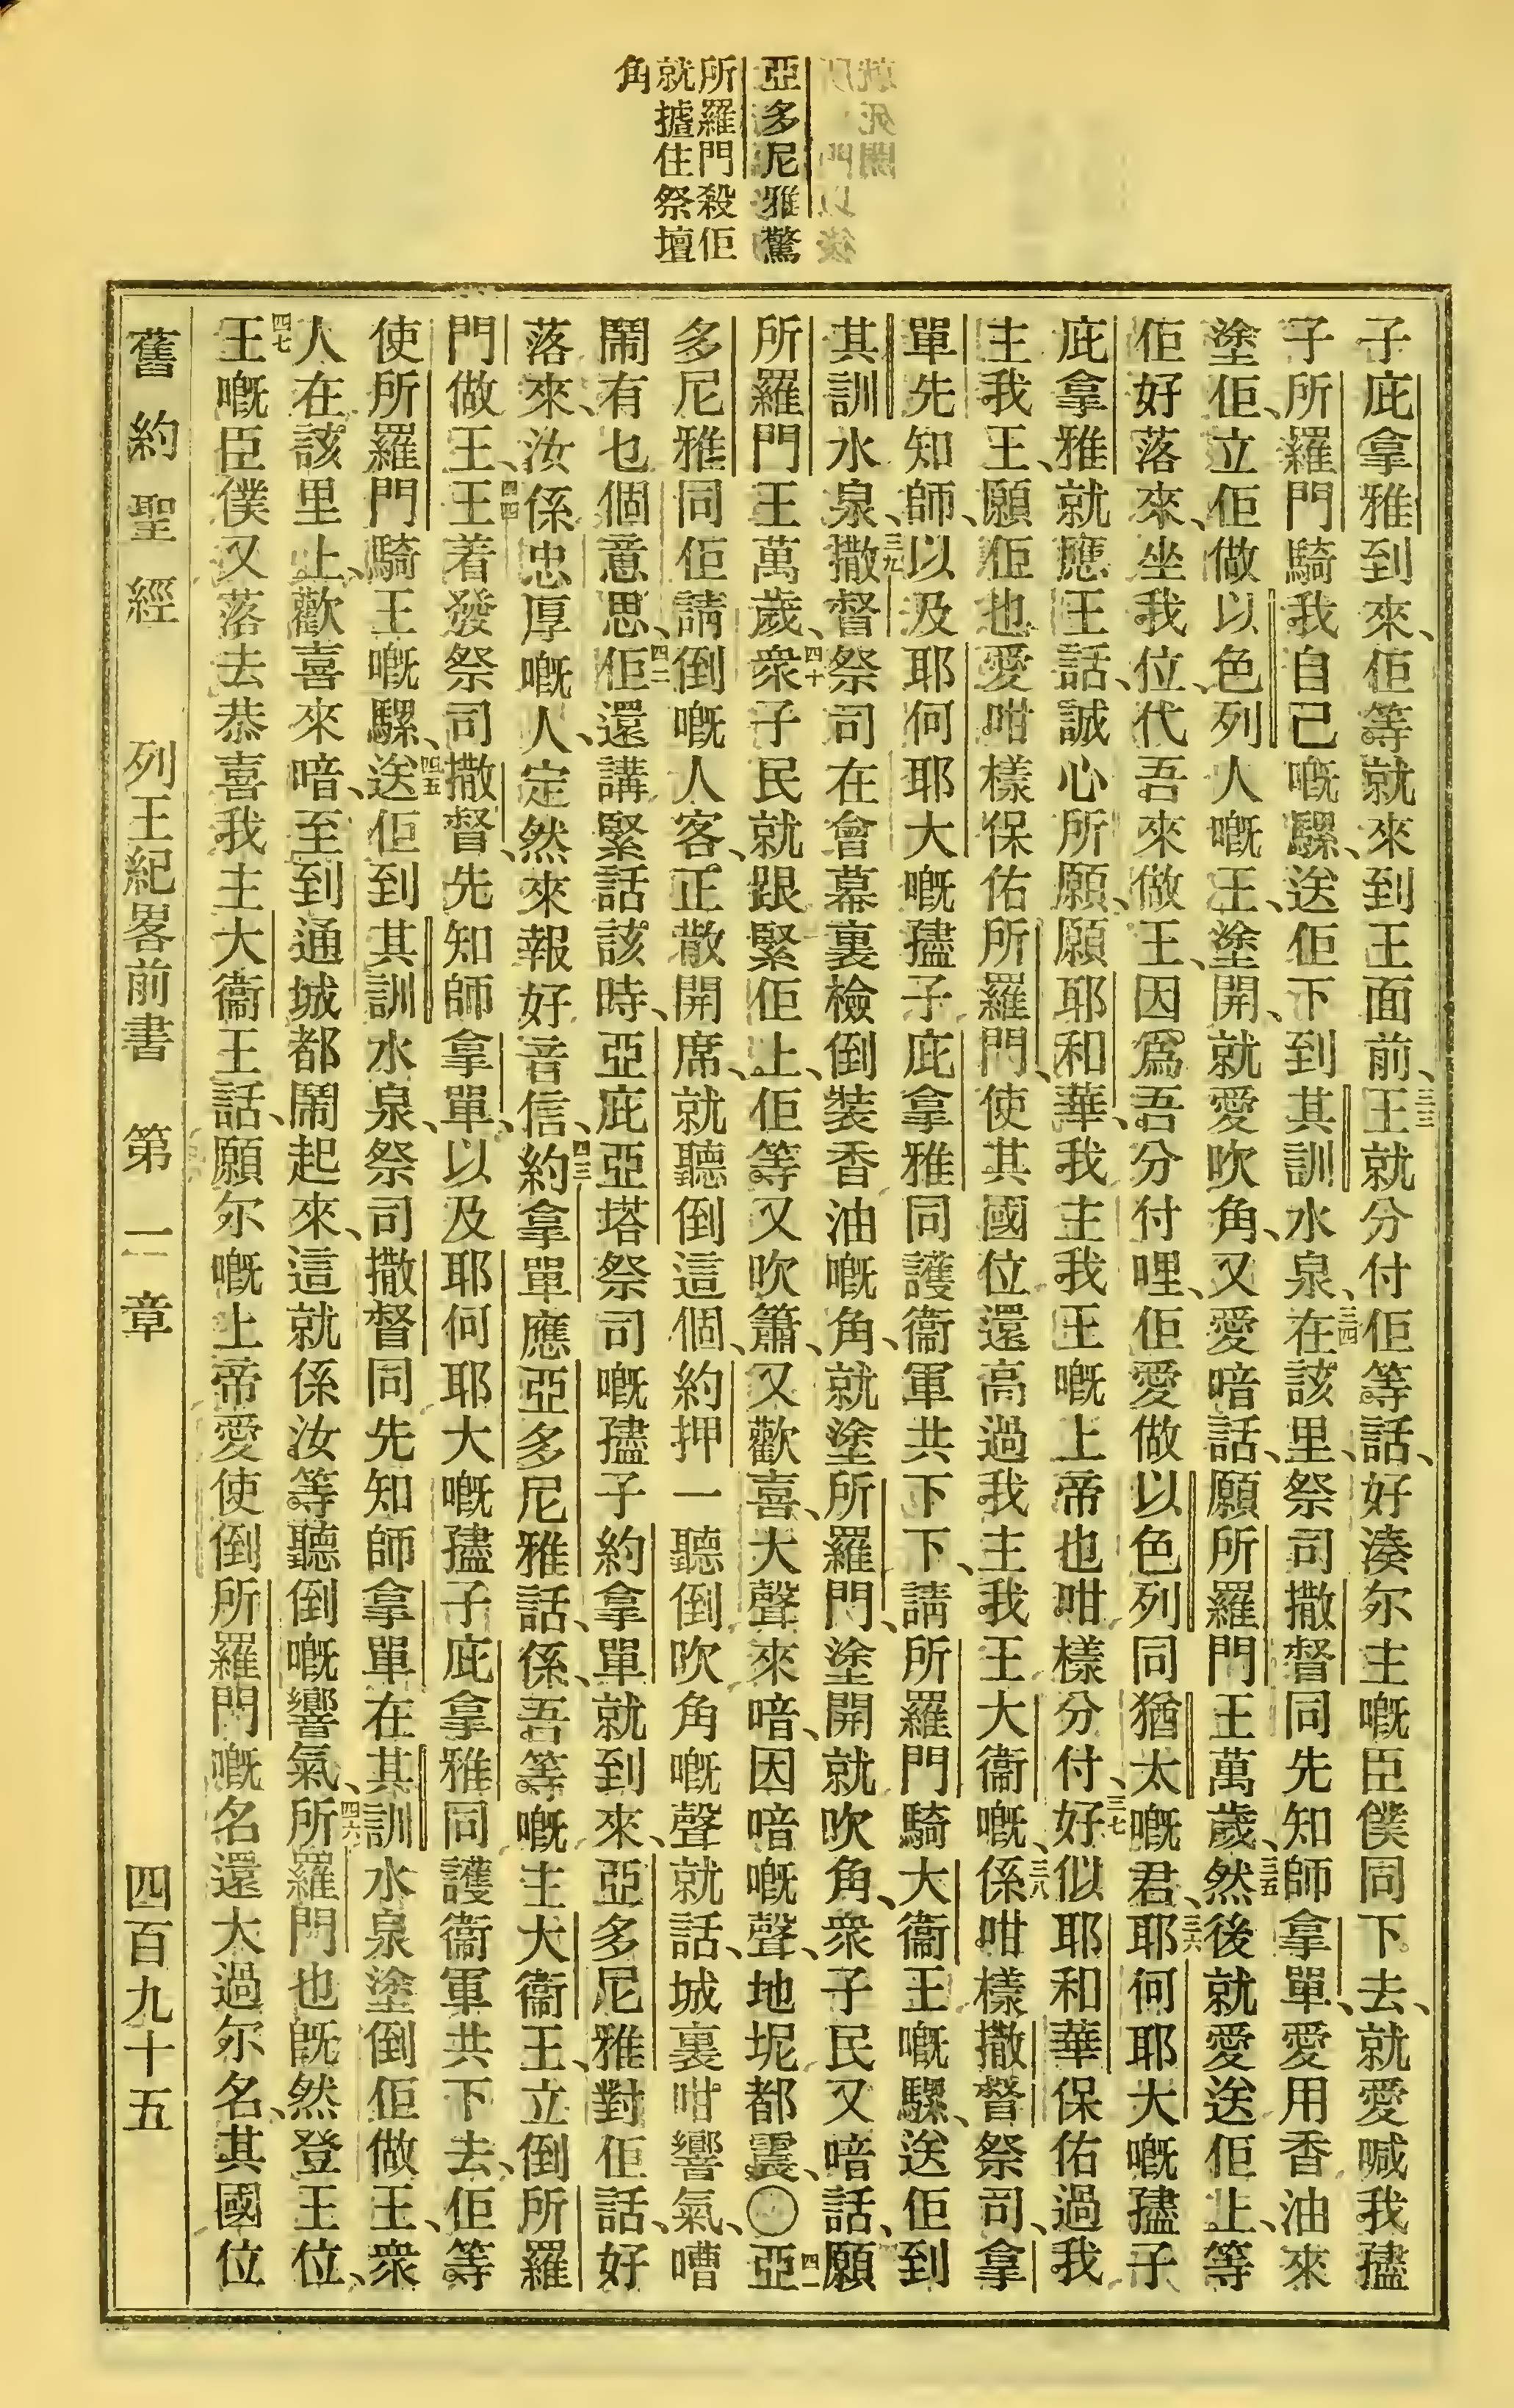 亞多尼雅驚
所羅門殺佢
就㨿住祭壇
角
子庇拿雅到來、佢等就來到王面前、三三王就分付佢等話、好湊尔主嘅臣僕同下去、就愛喊我𡥧
子所羅門騎我自己嘅騾、送佢下到其訓水泉、三四在該里、祭司撒督同先知師拿單、愛用香油來
塗佢、立佢做以色列人嘅王、塗開、就愛吹角、又愛喑話、願所羅門王萬歲、三五然後就愛送佢上、等
佢好落來、坐我位、代吾來做王、因爲吾分付哩、佢愛做以色列同猶太嘅君、三六耶何耶大嘅𡥧子
庇拿雅就應王話、誠心所願、願耶和華、我主我王嘅上帝也咁樣分付、三七好似耶和華保佑過我
主我王、願佢也愛咁樣保佑所羅門、使其國位還高過我主我王大衞嘅、三八係咁樣撒督祭司、拿
單先知師、以及耶何耶大嘅𡥧子庇拿雅、同護衞軍共下下、請所羅門騎大衞王嘅騾、送佢到
其訓水泉、三九撒督祭司在會幕裏檢倒裝香油嘅角、就塗所羅門、塗開就吹角、衆子民又喑話、願
所羅門王萬歲、四十衆子民就跟緊佢上、佢等又吹簫、又歡喜、大聲來喑、因喑嘅聲、地坭都震、〇四一亞
多尼雅同佢請倒嘅人客、正散開席、就聽倒這個、約押一聽倒吹角嘅聲就話、城裏咁響氣、嘈
鬧有乜個意思、四二佢還講緊話該時、亞庇亞塔祭司嘅𡥧子約拿單就到來、亞多尼雅對佢話、好
落來、汝係忠厚嘅人、定然來報好音信、四三約拿單應亞多尼雅話、係、吾等嘅主大衞王、立倒所羅
門做王、四四王着發祭司撒督、先知師拿單、以及耶何耶大嘅𡥧子庇拿雅同護衞軍共下去、佢等
使所羅門騎王嘅騾、四五送佢到其訓水泉、祭司撒督同先知師拿單在其訓水泉塗倒佢做王、衆
人在該里上、歡喜來喑、至到通城都鬧起來、這就係汝等聽倒嘅響氣、四六所羅門也旣然登王位、
四七王嘅臣僕又落去恭喜我主大衞王話、願尔嘅上帝愛使倒所羅門嘅名還大過尔名、其國位
舊約聖經　列王紀畧前書　第一章　四百九十五